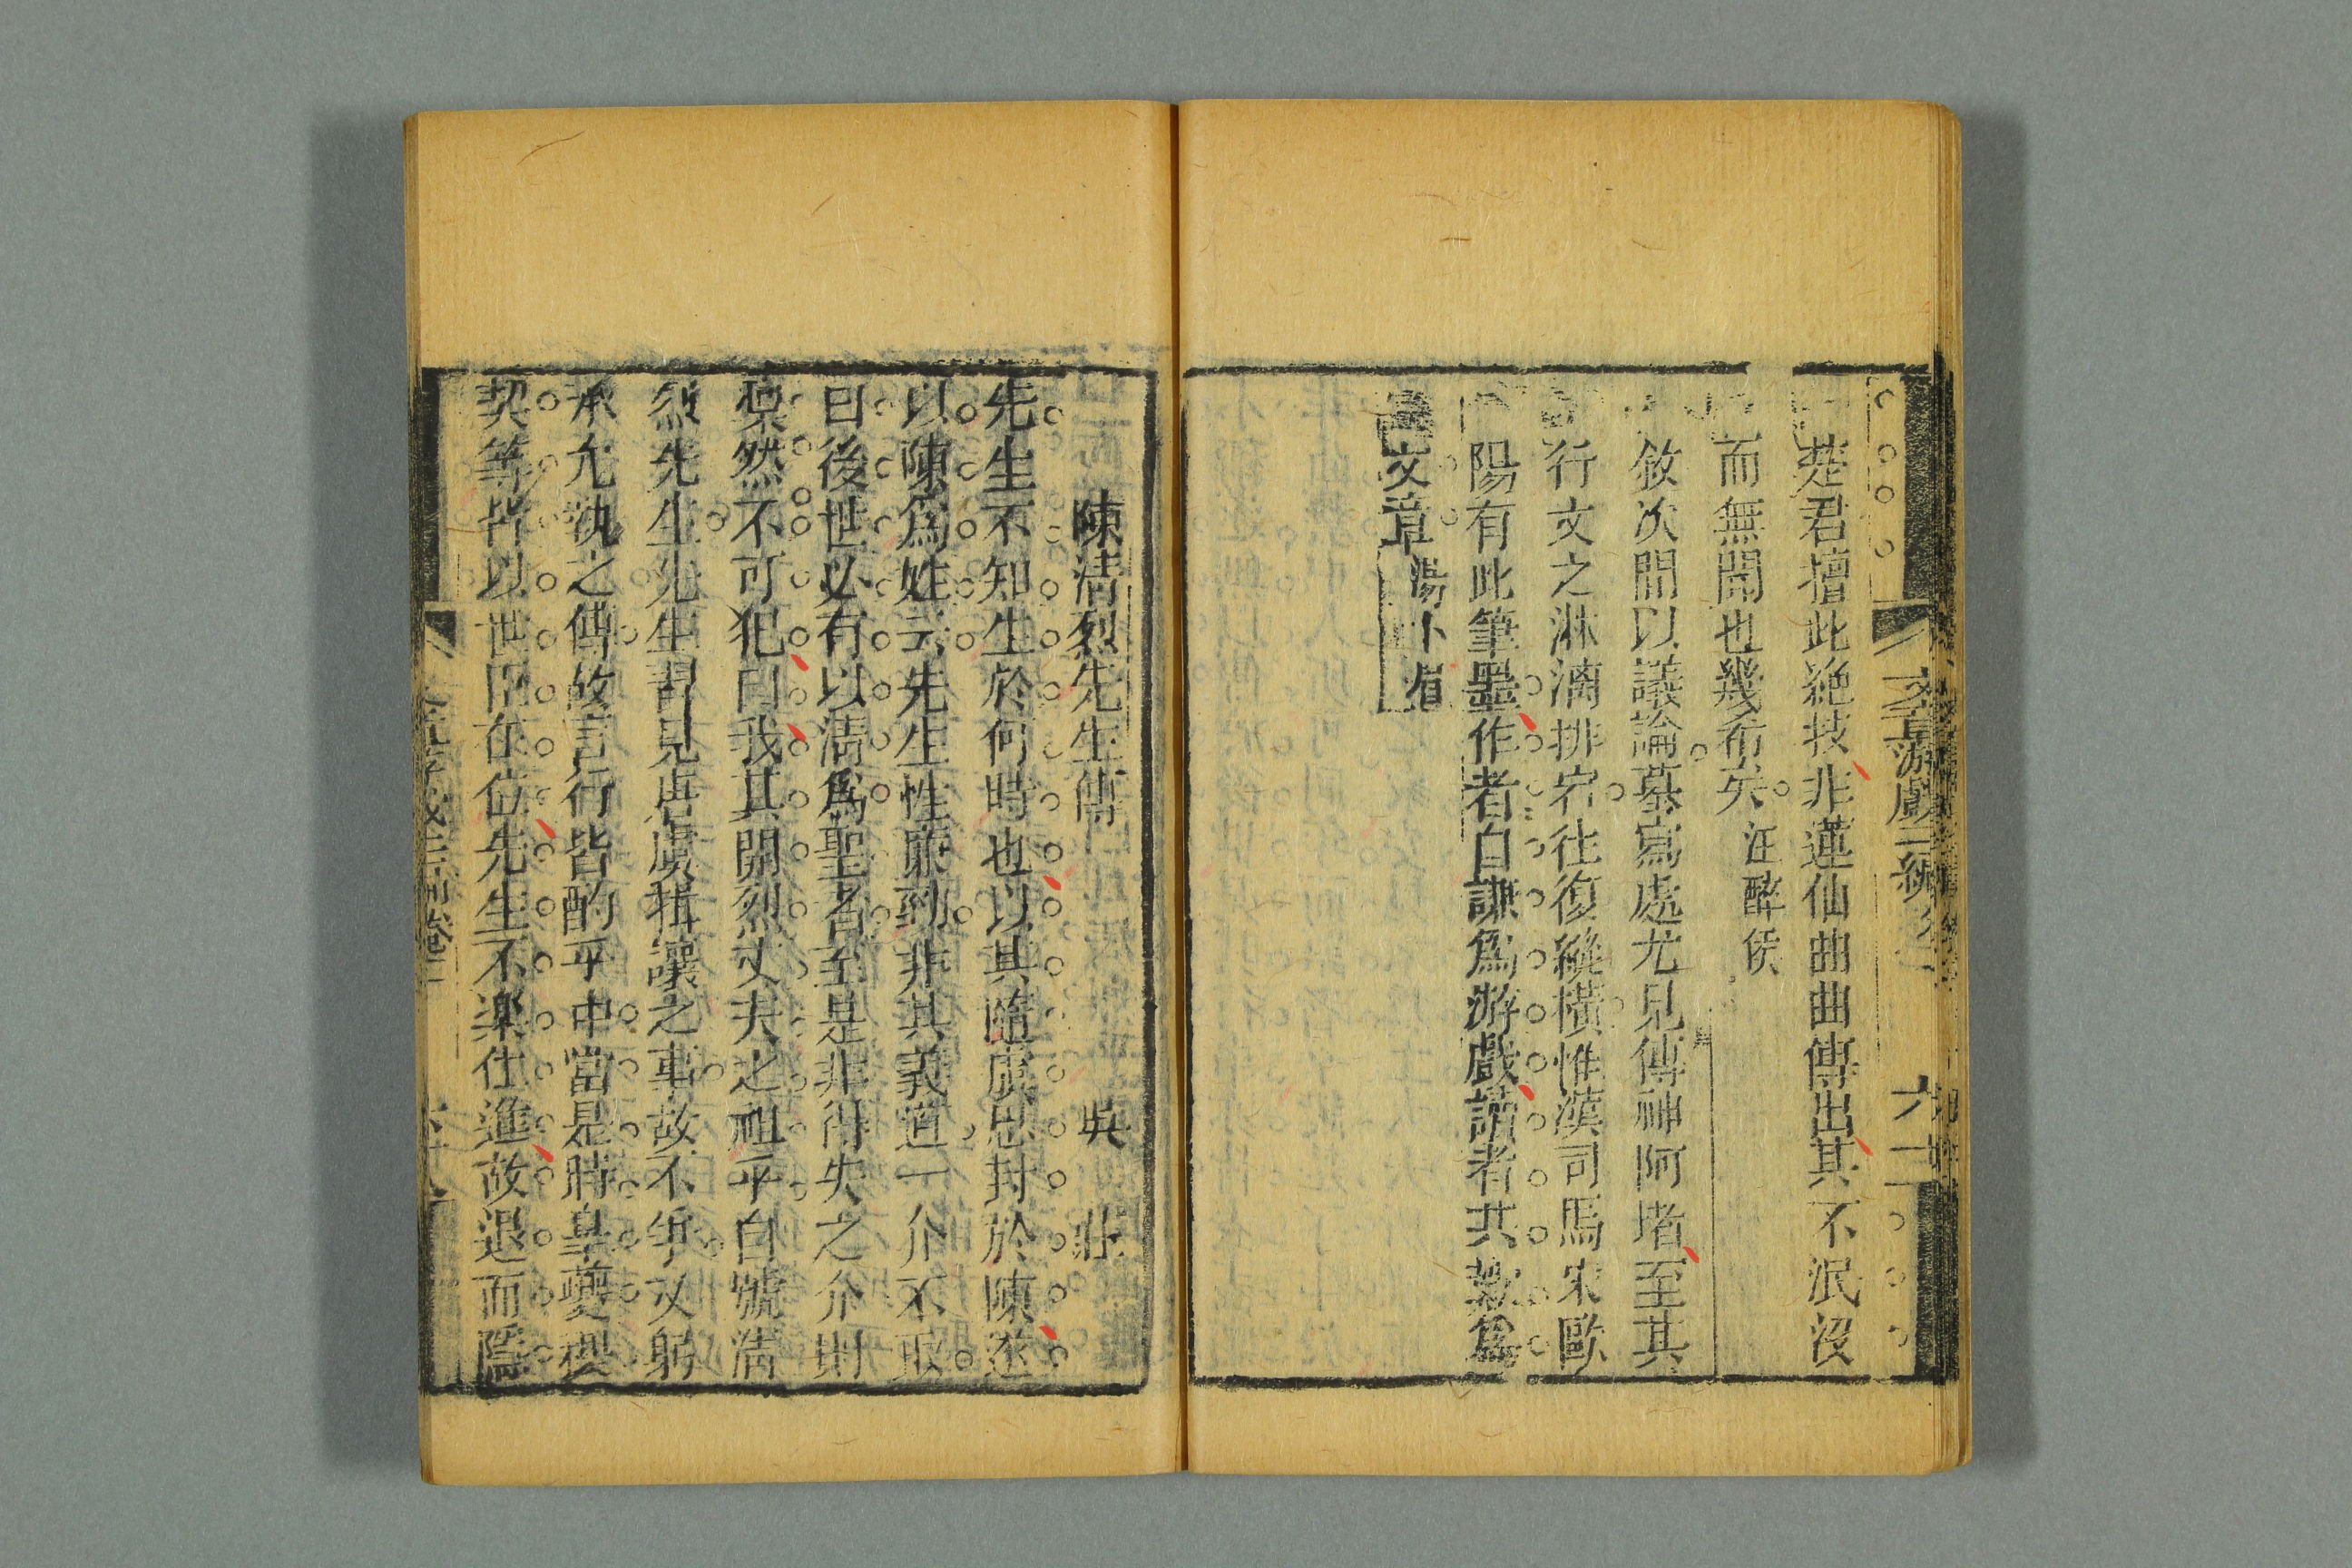 文章游戲三編卷二
六十
楚君擅此絶技非蓮仙曲曲傳出其不泯没
而無聞也幾希矣汪醉侯
敘次間以議論摹寫處尤見傳神阿堵至其
行文之淋漓排宕往復縱橫惟漢司馬宋歐
陽有此筆墨作者自謙爲游戲讀者共欽爲
文章湯小眉
陳清烈先生傳 吳 莊
先生不知生於何時也以其隨虞思封於陳遂
以陳爲姓云先生性廉勁非其義道一介不取
曰後世必有以清爲聖者至是非得失之介則
凛然不可犯曰我其開烈丈夫之祖乎自號清
烈先生先生習見唐虞揖讓之事故不爭又躬
承允執之傳故言行皆酌乎中當是時臯夔稷
契等皆以世臣在位先生不樂仕進故退而隱